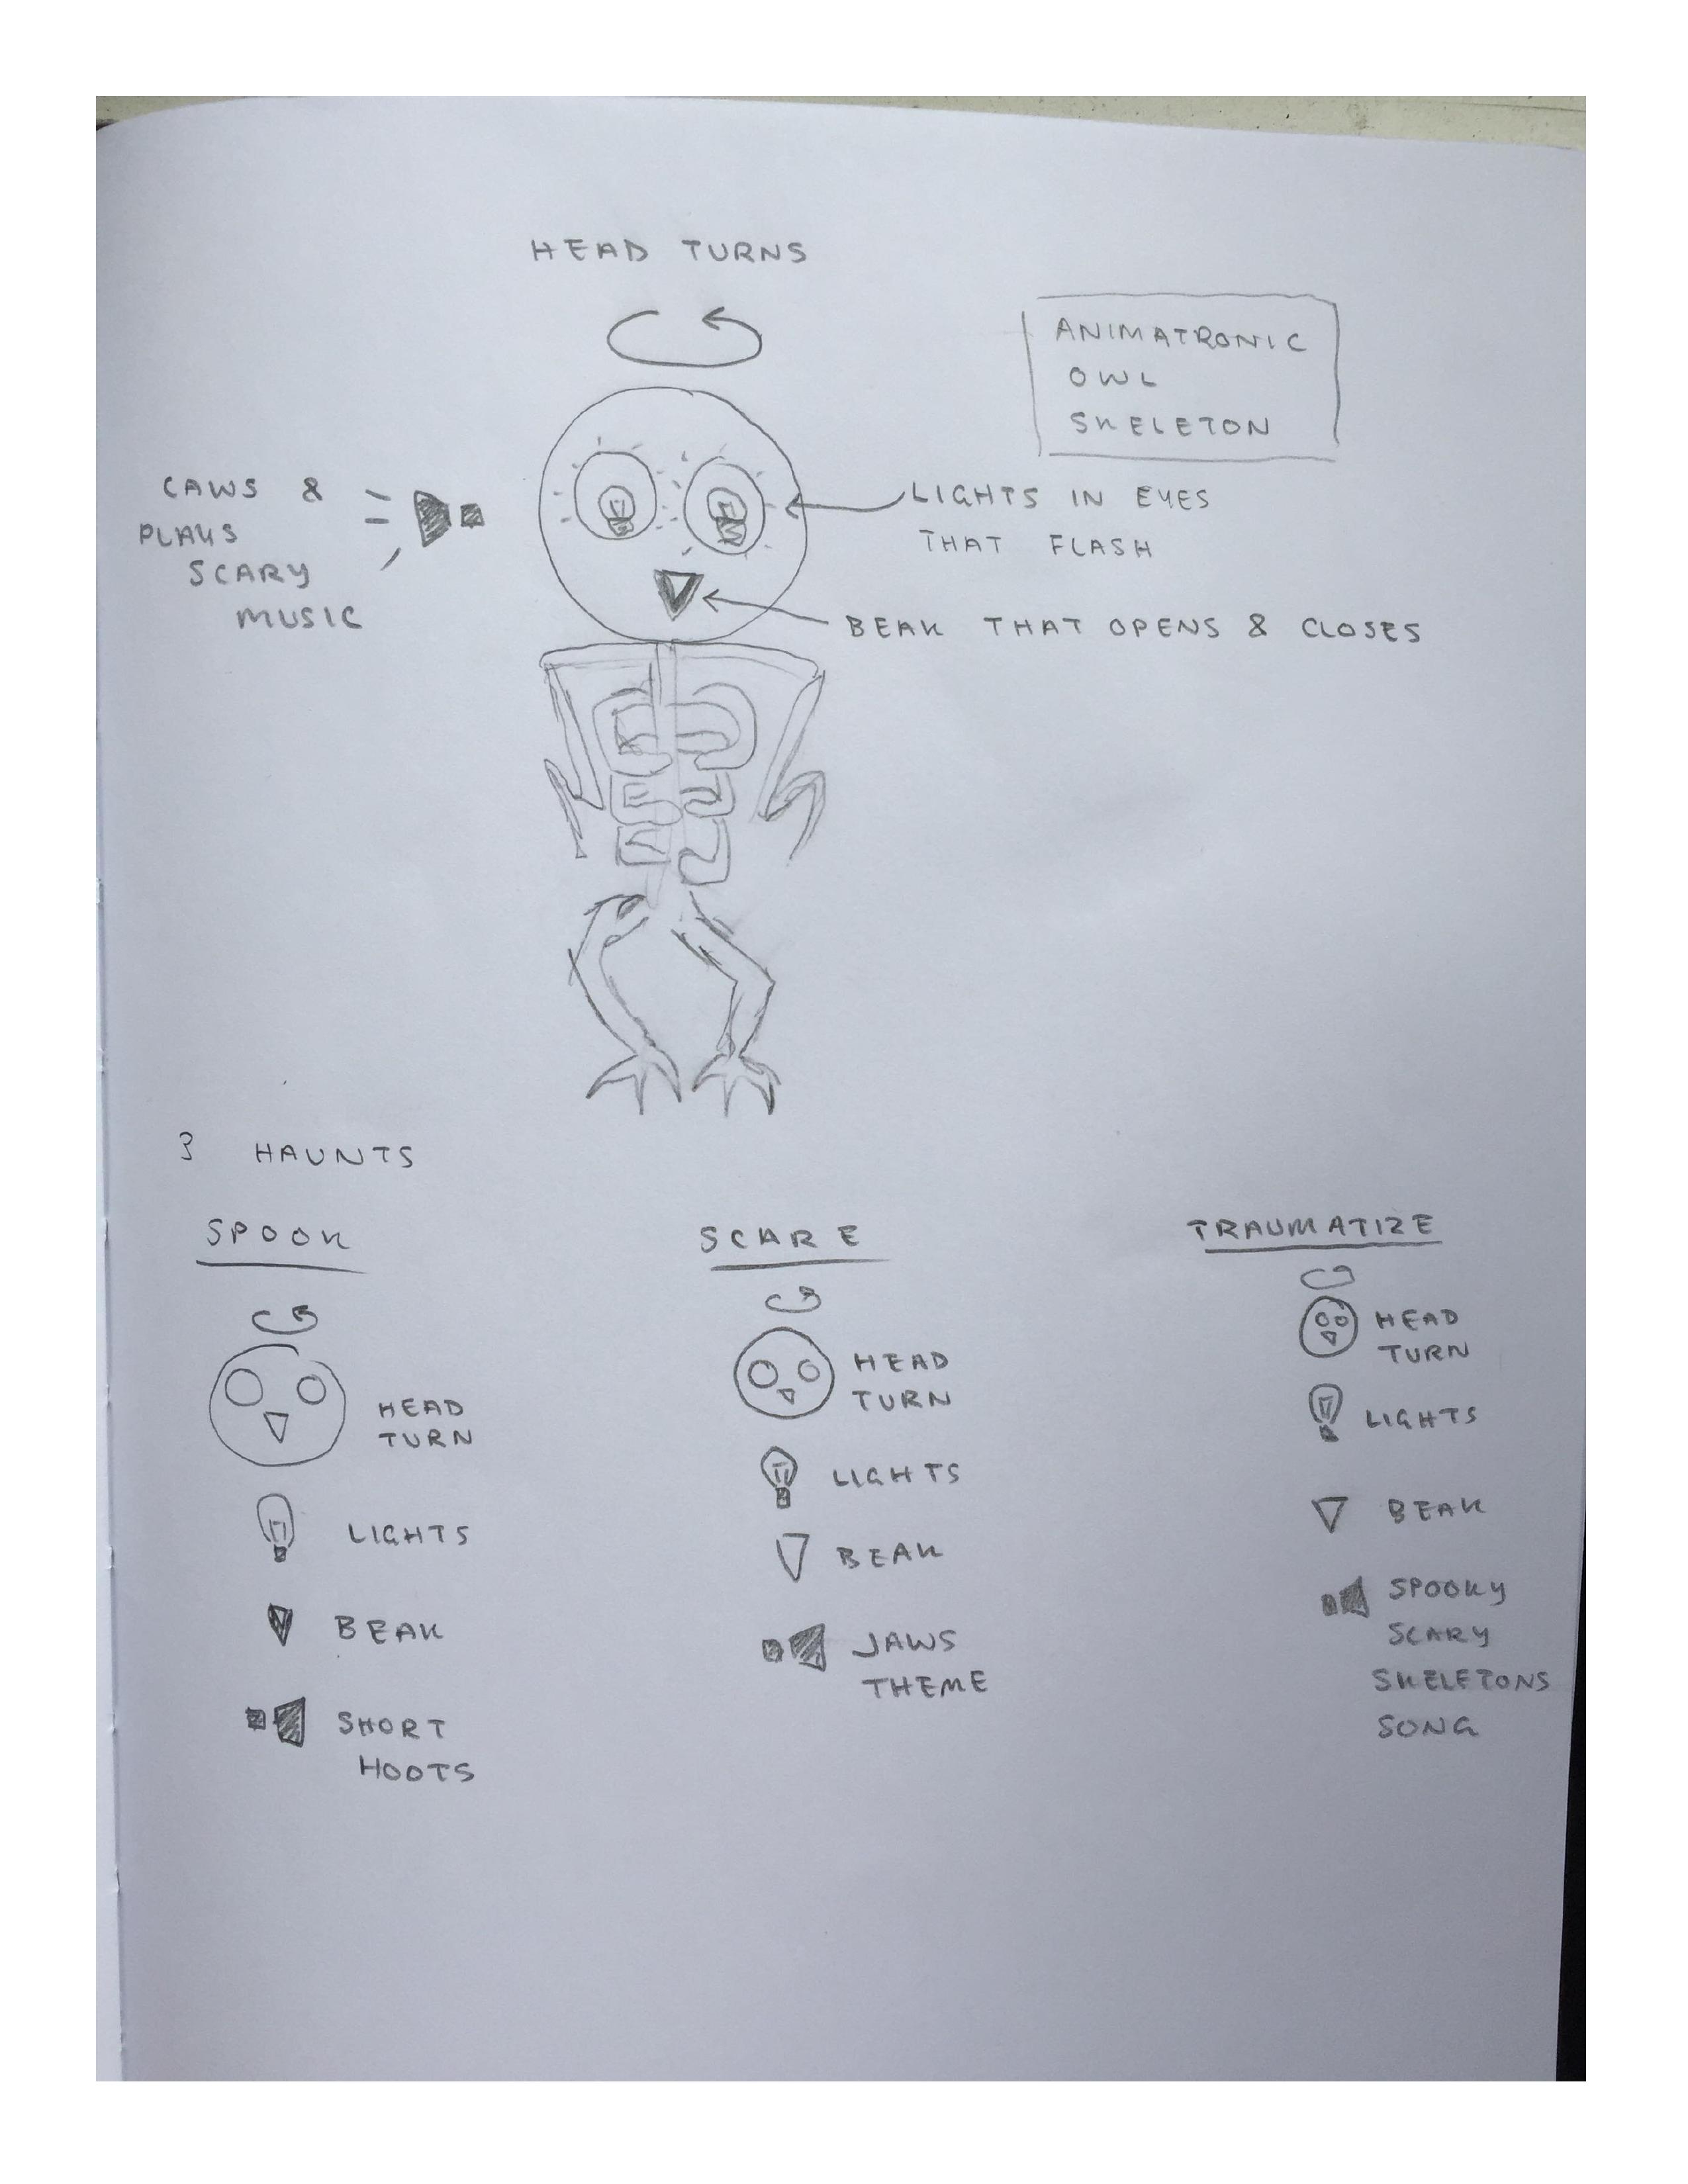 HEAD TURNS
ANIMATRONIC
OWL
SKELETON
CAWS &
PLAYS
SCARY
MUSIC
LIGHTS IN EYES
THAT FLASH
BEAK THAT OPENS & CLOSES
3 HAUNTS
SPOOK
HEAD
TURN
LIGHTS
BEAK
SHORT
HOOTS
SCARE
HEAD
TURN
LIGHTS
BEAK
JAWS
THEME
TRAUMATIZE
HEAD
TURN
LIGHTS
BEAK
SPOOKY
SCARY
SKELETONS
SONG